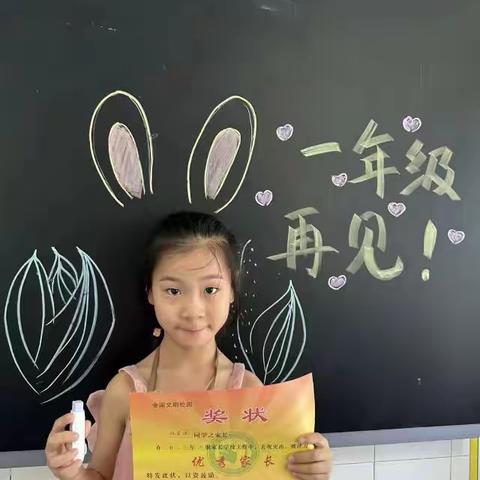 一年级
再见！
全国文明校园
奖状
同学之家长
优秀家长
特发此状，以资鼓励。